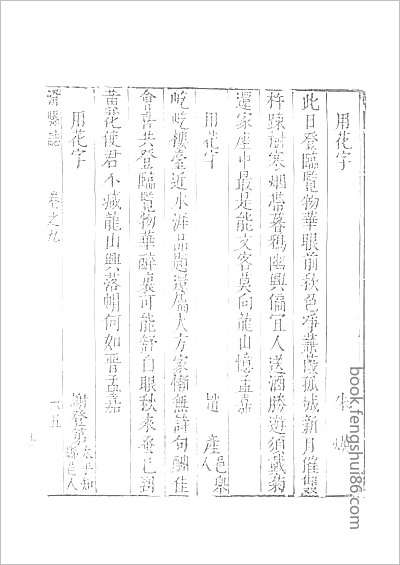 用花字
此日登臨覽物華眼前秋色淨蒹葭孤城新月催雙
杵疎樹寒烟帶暮鴉幽興偏宜人送酒勝遊須戴菊
還家座中最是能文客莫向龍山憶孟嘉
用花字 趙 產 邑舉人
屹屹樓臺近水涯品題還屬大方家慚無詩句酬佳
會喜共登臨覽物華醉裏可能舒白眼秋來已到
黃花使君不藏龍山興落帽何如晉孟嘉
用花字 謝登第 太平知縣邑人
滑縣誌 卷之九
book.fengshui86.com